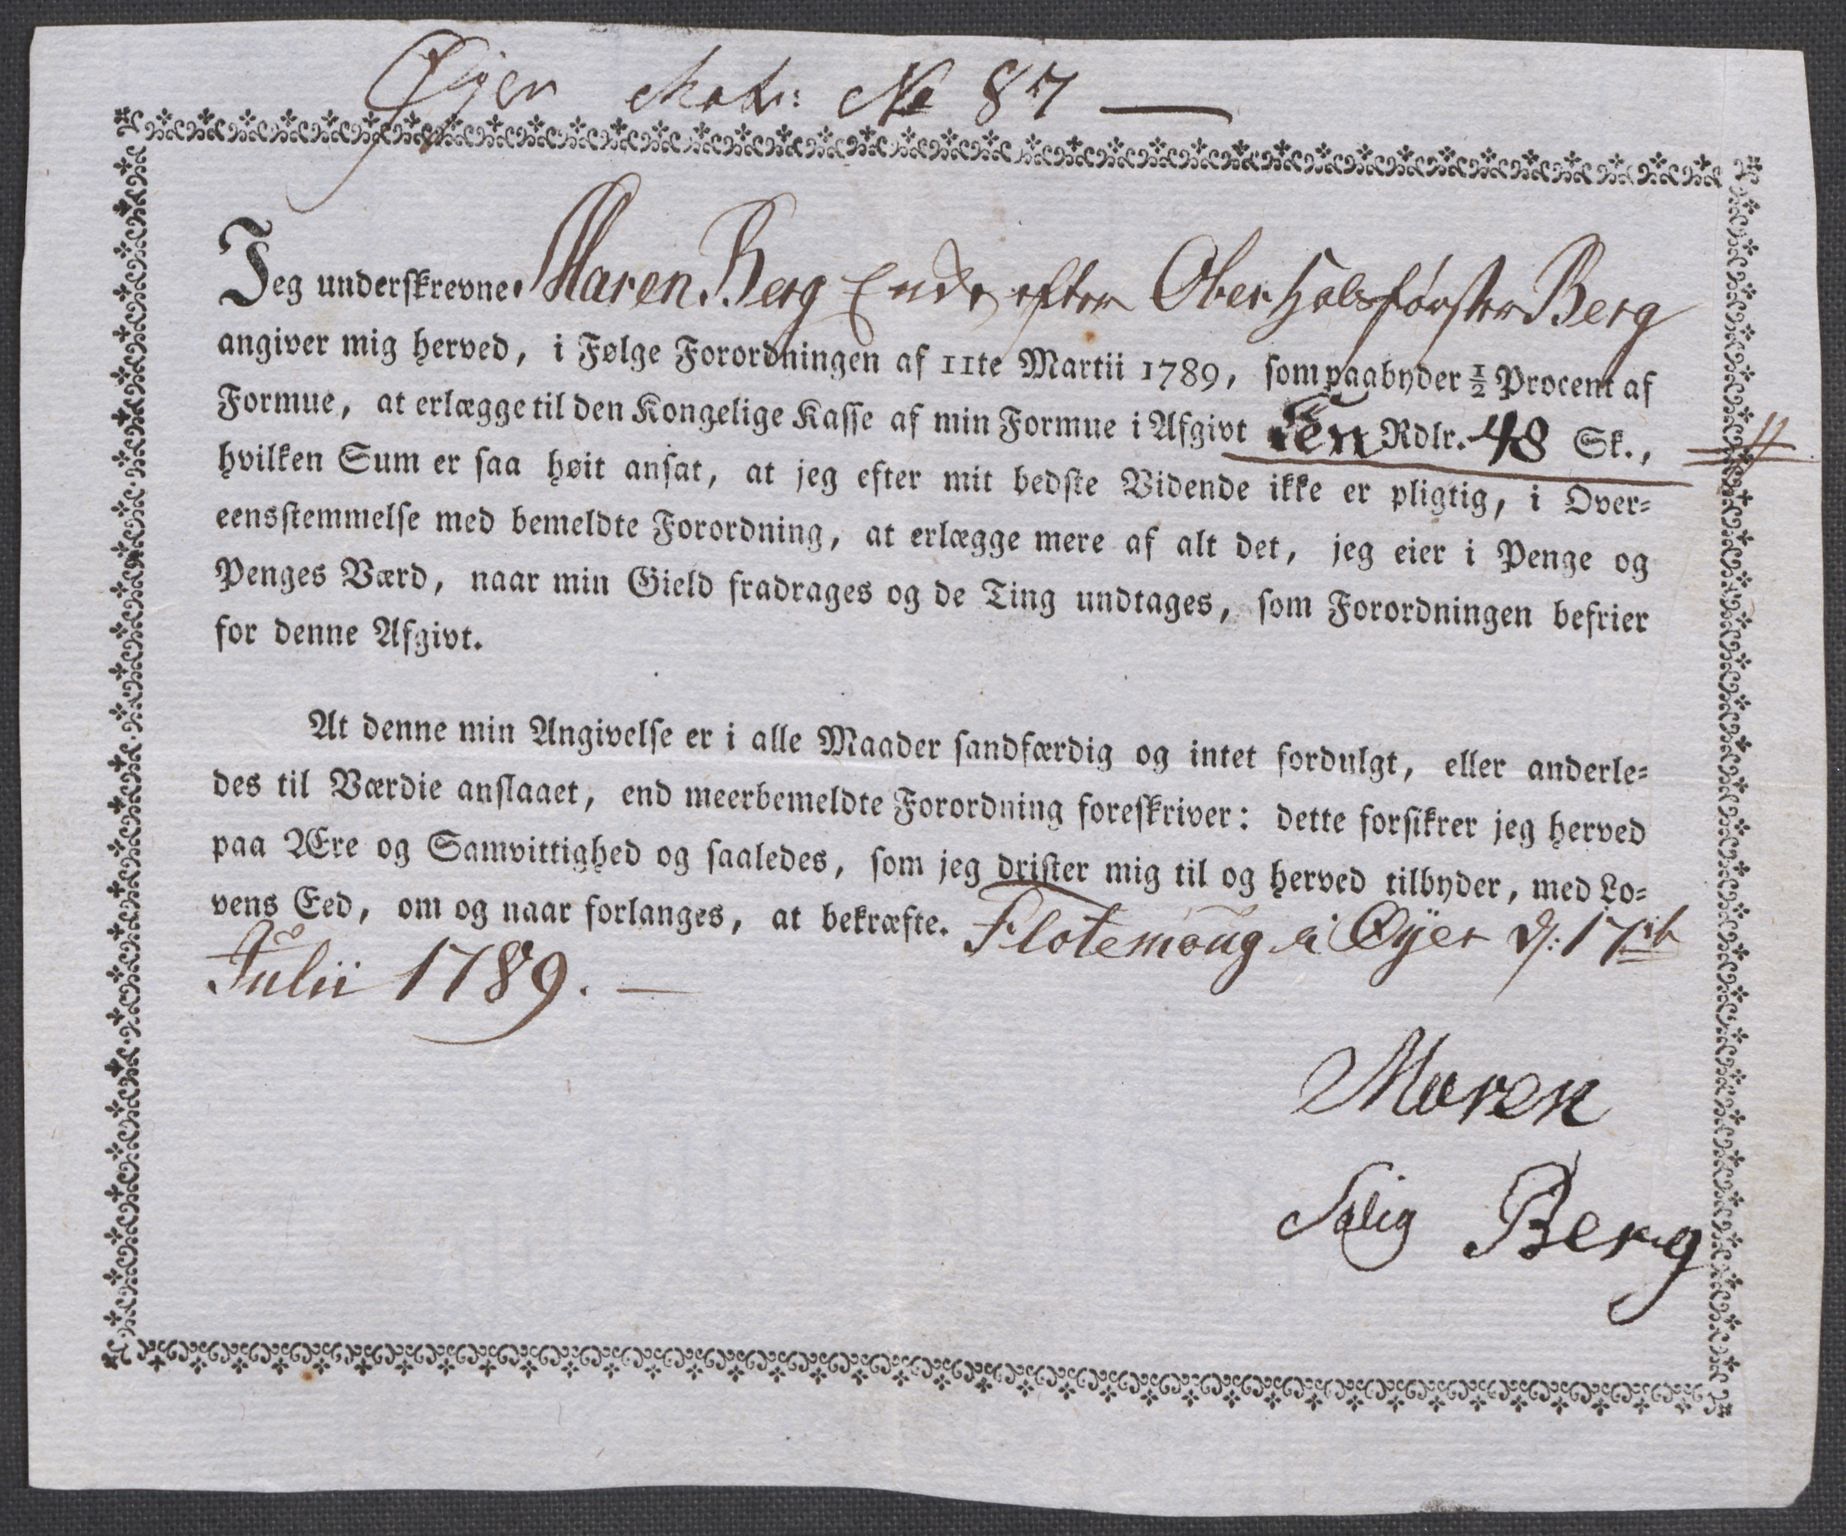 Øyer Matr: No 87 —
Jeg underskrevne Maren Berg Enke efter Oberholsførster Berg
angiver mig herved, i Følge Forordningen af 11te Martii 1789, som paabyder ½ Procent af
Formue, at erlægge til den Kongelige Kasse af min Formue i Afgivt Een Rdlr. 48 Sk.,
hvilken Sum er saa høit ansat, at jeg efter mit bedste Vidende ikke er pligtig, i Over=
eensstemmelse med bemeldte Forordning, at erlægge mere af alt det, jeg eier i Penge og
Penges Værd, naar min Gield fradrages og de Ting undtages, som Forordningen befrier
for denne Afgivt.
At denne min Angivelse er i alle Maader sandfærdig og intet fordulgt, eller anderle=
des til Værdie anslaaet, end meerbemeldte Forordning foreskriver: dette forsikrer jeg herved
paa Ære og Samvittighed og saaledes, som jeg drister mig til og herved tilbyder, med Lo=
vens Eed, om og naar forlanges, at bekræfte. i Øyer d: 17de
Julii 1789. —
Maren
Salig Berg